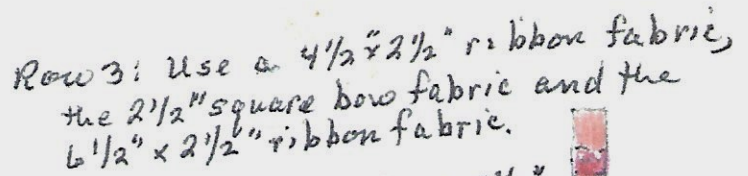 Row 3: Use a 4 1/2" x 2 1/2" ribbon fabric,
the 2 1/2" square bow fabric and the
6 1/2" x 2 1/2" ribbon fabric.